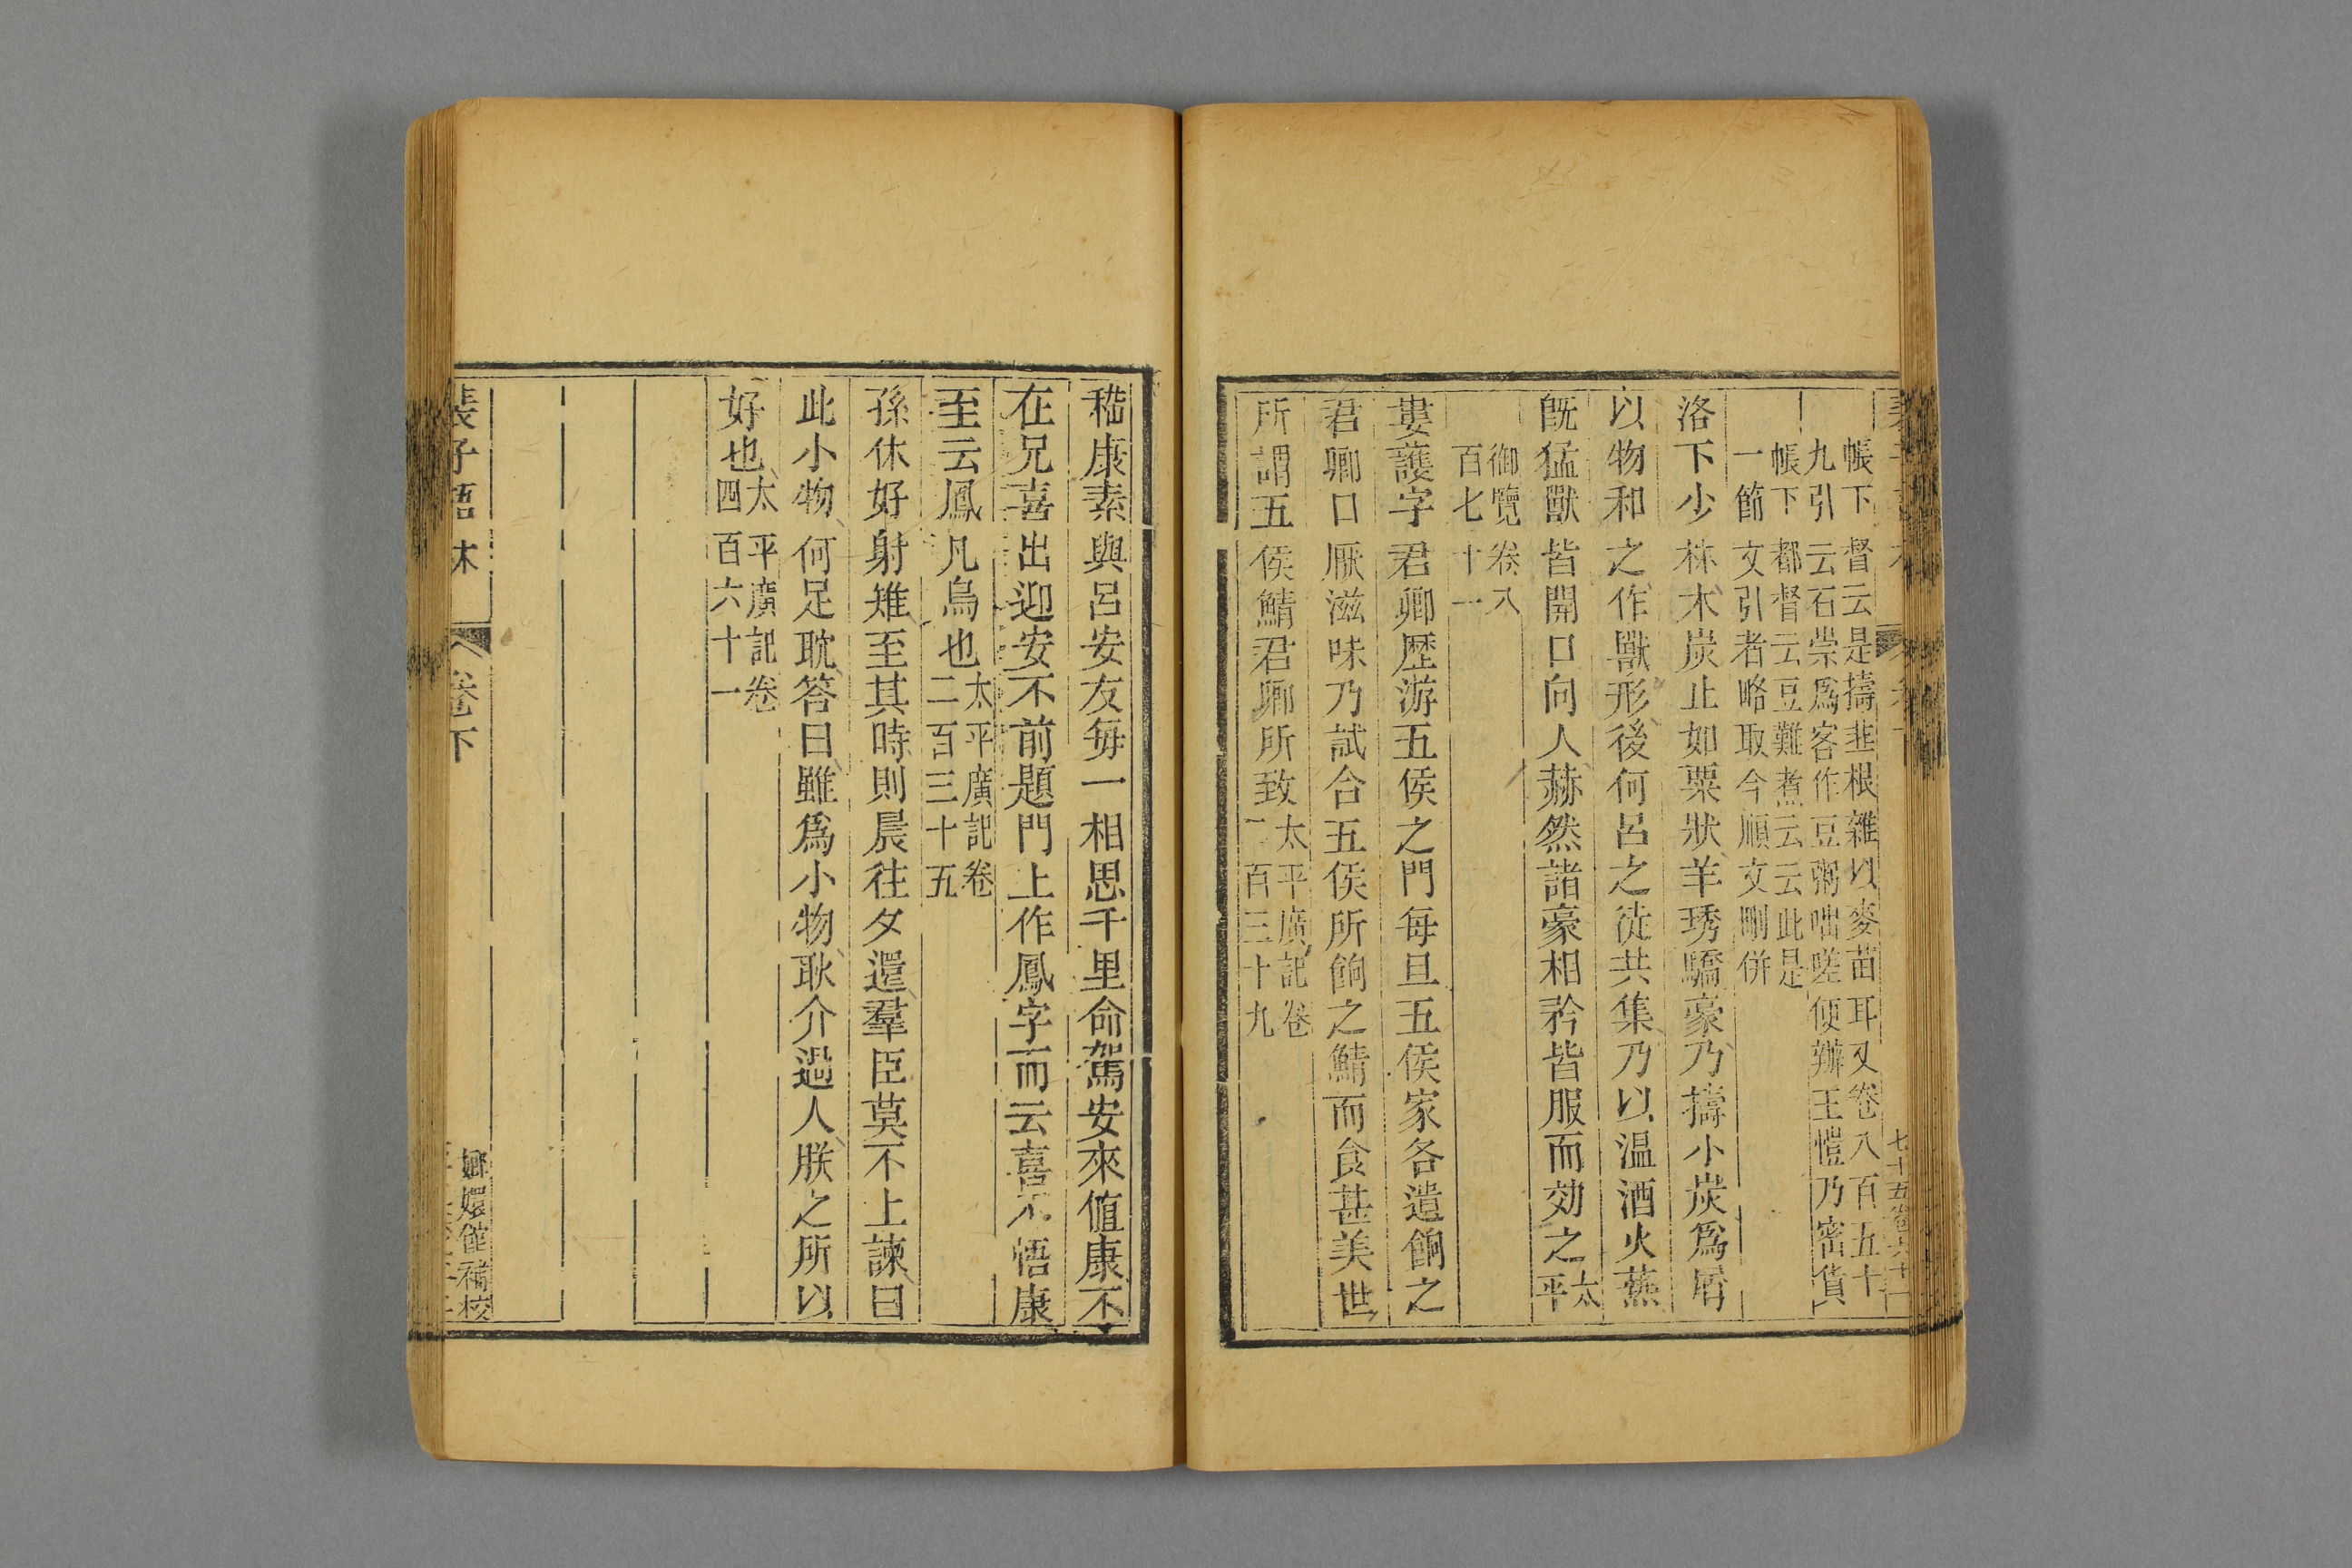 帳下督云是擣韭根雜以麥苗耳又卷八百五十
九引云石崇爲客作豆粥咄嗟便辦王愷乃密貨
帳下都督云豆難煮云云此是
一節文引者略取今順文刪併
洛下少林木炭止如粟狀羊琇驕豪乃擣小炭爲屑
以物和之作獸形後何呂之徒共集乃以温酒火蒸
旣猛獸皆開口向人赫然諸豪相矜皆服而効之太平
御覽卷八
百七十一
婁護字君卿歷游五侯之門每旦五侯家各遺餉之
君卿口厭滋味乃試合五侯所餉之鯖而食甚美世
所謂五侯鯖君卿所致太平廣記卷二百三十九
嵇康素與呂安友每一相思千里命駕安來値康不
在兄喜出迎安不前題門上作鳳字而云喜不悟康
至云鳳凡鳥也太平廣記卷二百三十五
孫休好射雉至其時則晨往夕還羣臣莫不上諫曰
此小物何足耽答曰雖爲小物耿介過人朕之所以
好也太平廣記卷四百六十一
裴子語林
卷下
嫏嬛館補校